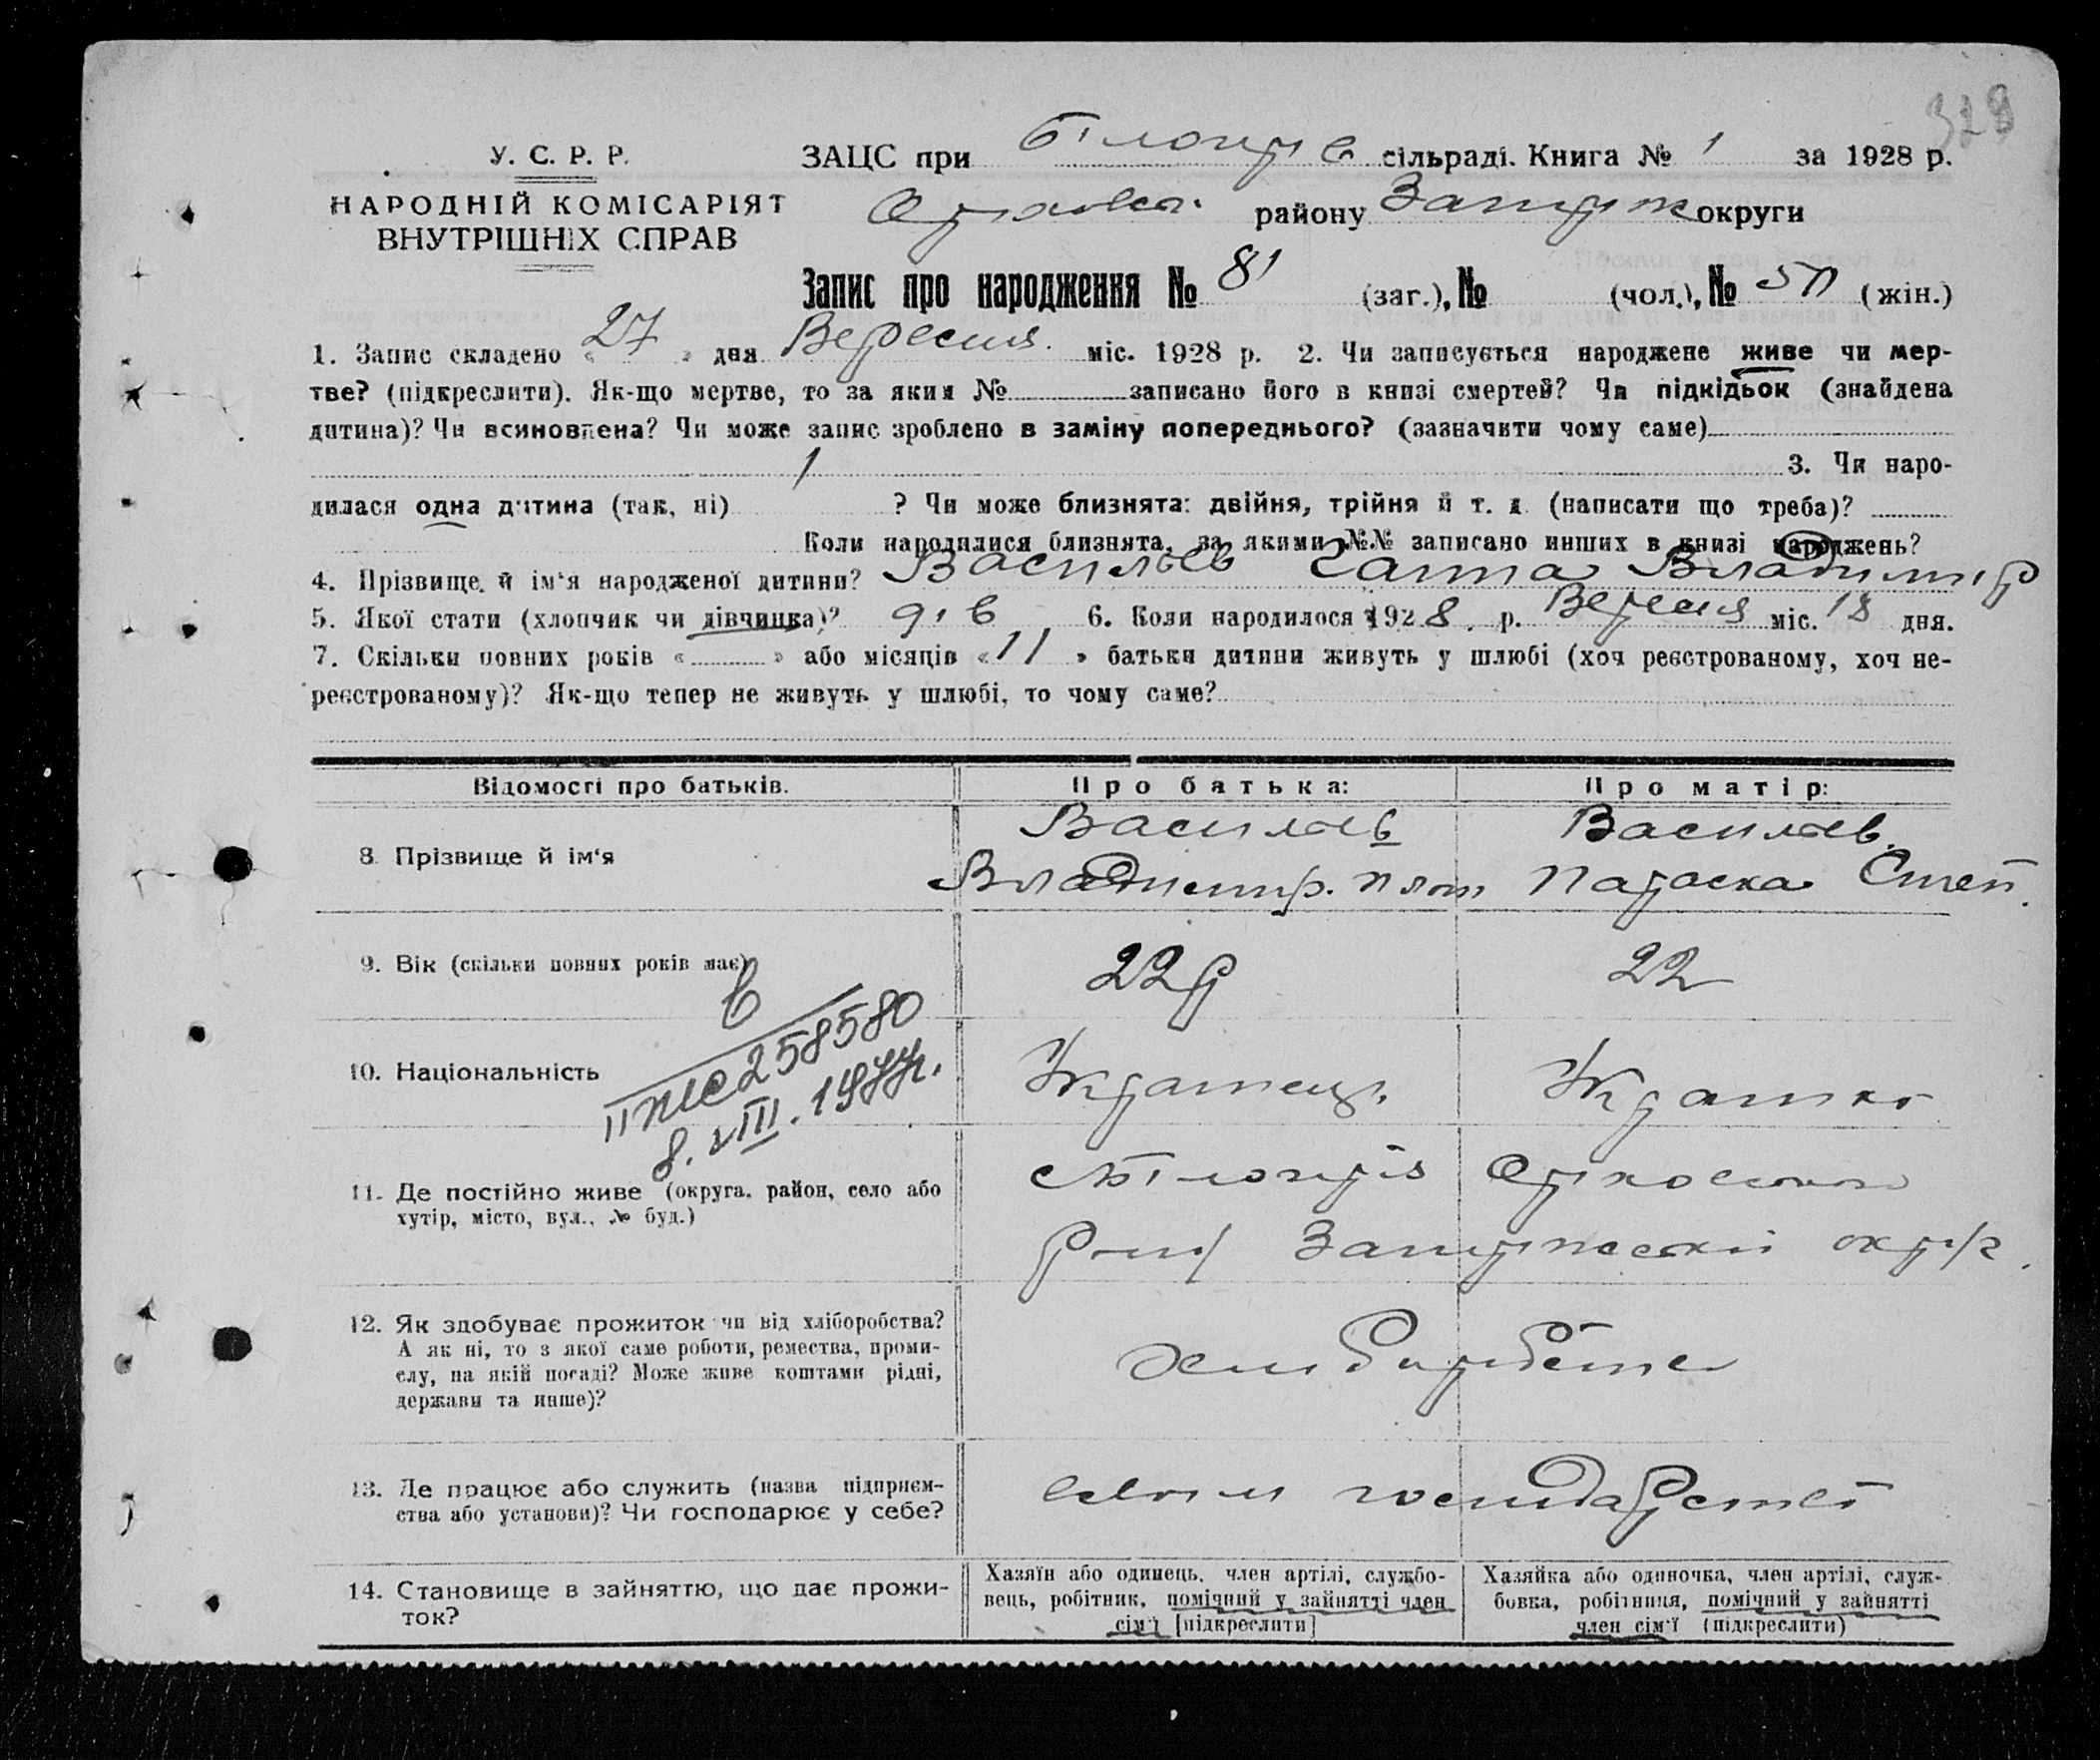 328
У. С. Р. Р.
НАРОДНІЙ КОМІСАРІЯТ
ВНУТРІШНІХ СПРАВ
ЗАЦС при сільраді. Книга № 1 за 1928 р.
району округи
Запис про народження № 81 (заг.), № (чол.), № (жін.)
1. Запис складено « 27 » дня Вересня міс. 1928 р. 2. Чи записується народжене живе чи мер-
тве? (підкреслити). Як-що мертве, то за яким № записано його в книзі смертей? Чи підкідьок (знайдена
дитина)? Чи всиновлена? Чи може запис зроблено в заміну попереднього? (зазначити чому саме)
3. Чи наро-
дилася одна дитина (так, ні) ? Чи може близнята: двійня, трійня й т. д. (написати що треба)?
Коли народилися близнята, за якими №№ записано инших в книзі народжень?
4. Прізвище й ім'я народженої дитини? Васильєв Ганна Владимир
5. Якої стати (хлопчик чи дівчинка)? дів 6. Коли народилося 1928 р. Вересня міс. 18 дня.
7. Скільки повних років « » або місяців « 11 » батьки дитини живуть у шлюбі (хоч реєстрованому, хоч не-
реєстрованому)? Як-що тепер не живуть у шлюбі, то чому саме?
Відомості про батьків. Про батька: Про матір:
8. Прізвище й ім'я Васильєв Васильєв
Владимир. Параска Степ.
9. Вік (скільки повних років має) 22 р 22
10. Національність Українець Українка
258580
8. III. 1977р.
11. Де постійно живе (округа, район, село або
хутір, місто, вул., № буд.)
12. Як здобуває прожиток чи від хліборобства?
А як ні, то з якої саме роботи, ремества, проми-
слу, на якій посаді? Може живе коштами рідні,
держави та инше)?
13. Де працює або служить (назва підприєм-
ства або установи)? Чи господарює у себе?
господарстві
14. Становище в зайняттю, що дає прожи-
ток?
Хазяїн або одинець, член артілі, службо-
вець, робітник, помічний у зайнятті член
сім'ї [підкреслити]
Хазяйка або одиночка, член артілі, служ-
бовка, робітниця, помічний у зайнятті
член сім'ї (підкреслити)